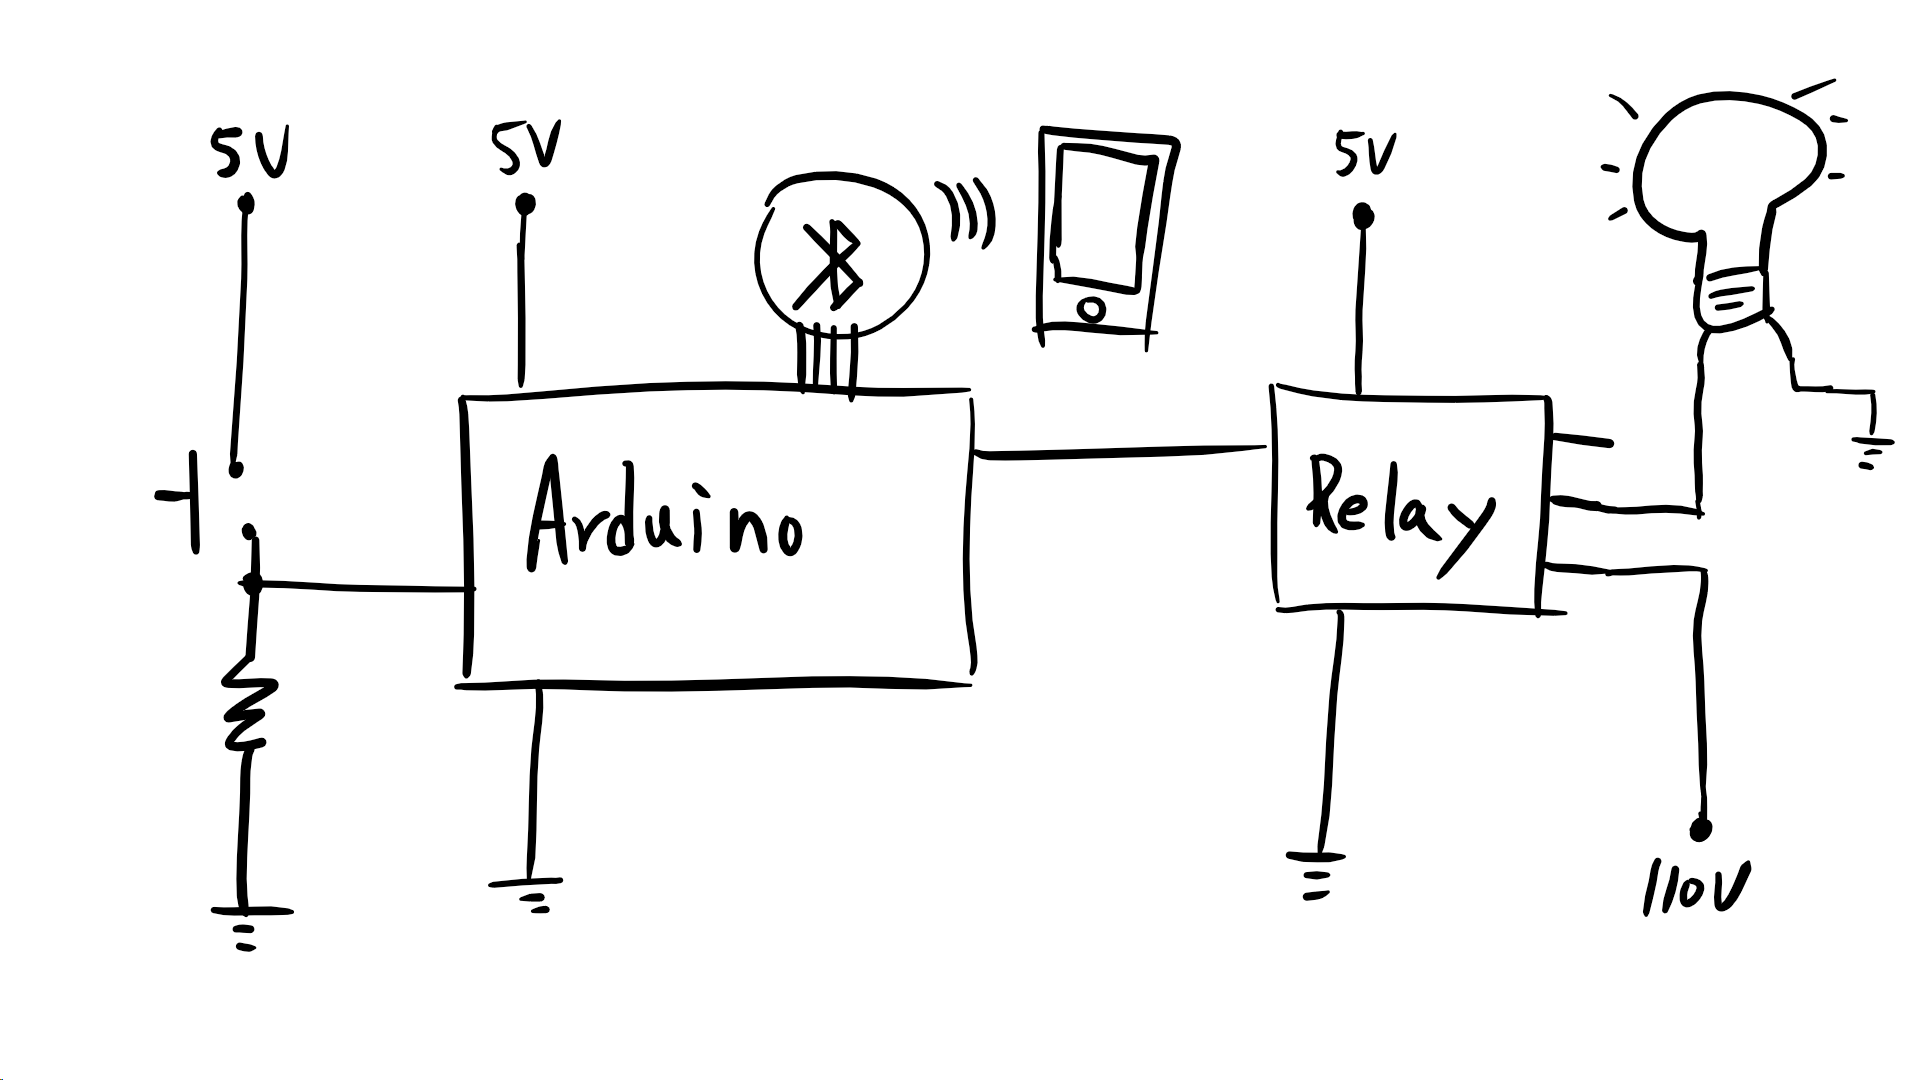 5V
5V
5V
Arduino
Relay
110V